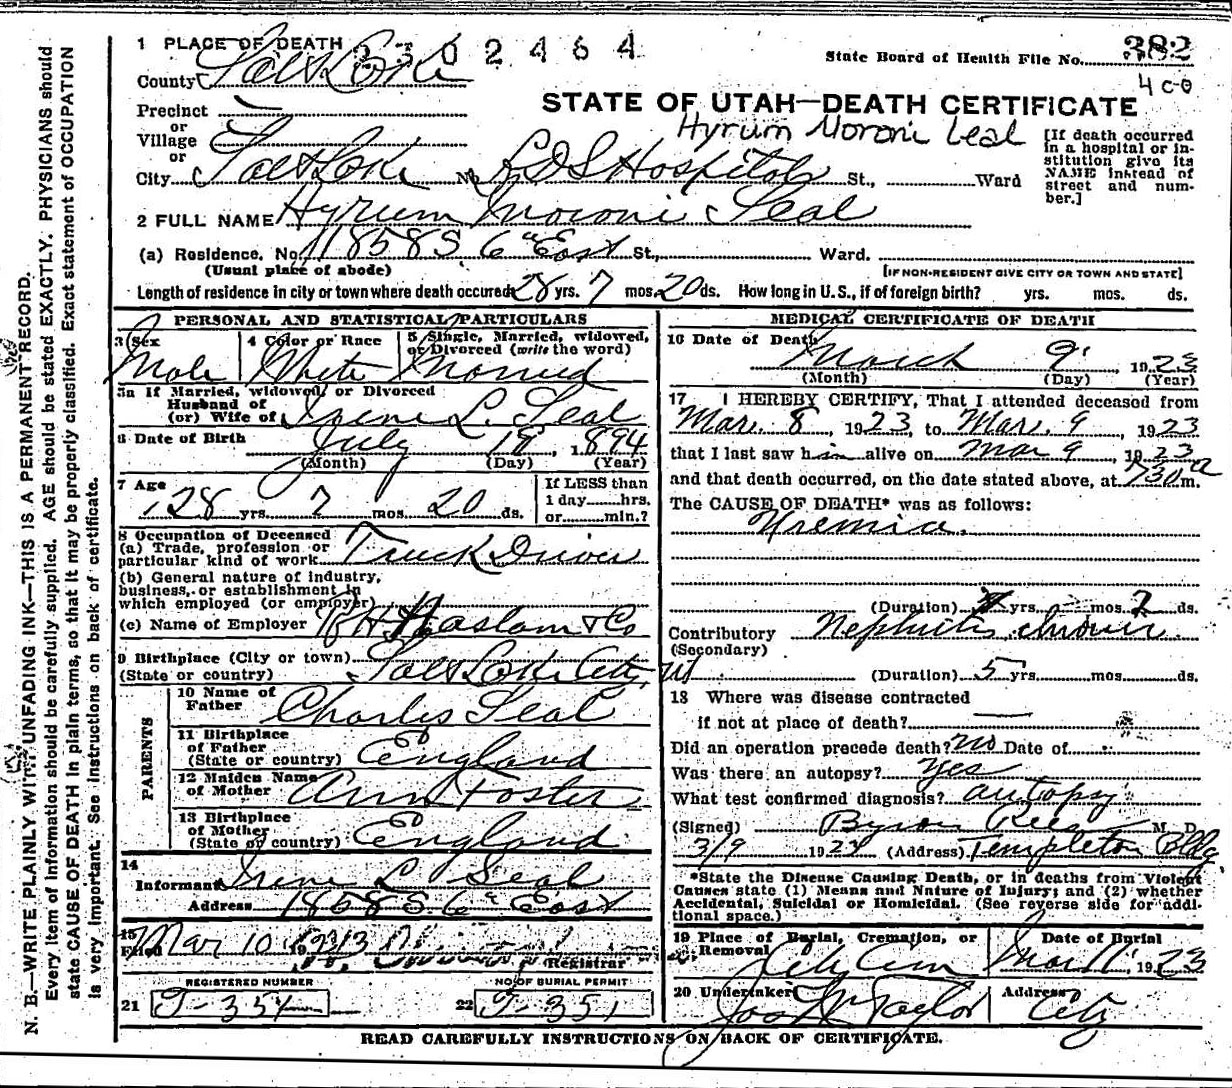 1 PLACE OF DEATH 2302464
State Board of Health File No. 382
County Salt Lake
400
STATE OF UTAH—DEATH CERTIFICATE
Precinct
or
Village
or
City Salt Lake No. LDS Hospital St., Ward
Hyrum Moroni Leal
[If death occurred
in a hospital or in-
stitution give its
NAME instead of
street and num-
ber.]
2 FULL NAME Hyrum Moroni Leal
(a) Residence. No. 1858 S. 6" East St., Ward.
(Usual place of abode)
[IF NON-RESIDENT GIVE CITY OR TOWN AND STATE]
Length of residence in city or town where death occured 28 yrs. 7 mos. 20 ds. How long in U.S., if of foreign birth? yrs. mos. ds.
PERSONAL AND STATISTICAL PARTICULARS
3 Sex
Male
4 Color or Race
White
5 Single, Married, widowed,
or Divorced (write the word)
Married
5a If Married, widowed, or Divorced
Husband of
(or) Wife of Irene L. Leal
6 Date of Birth July 18, 1894
(Month) (Day) (Year)
7 Age
28 yrs. 7 mos. 20 ds.
If LESS than
1 day hrs.
or min.?
8 Occupation of Deceased
(a) Trade, profession or
particular kind of work Truck Driver
(b) General nature of industry,
business, or establishment in
which employed (or employer)
(c) Name of Employer Haslam & Co
9 Birthplace (City or town) Salt Lake City, Ut
(State or country)
PARENTS
10 Name of
Father Charles Leal
11 Birthplace
of Father
(State or country) England
12 Maiden Name
of Mother Ann Foster
13 Birthplace
of Mother
(State or country) England
14
Informant Irene L. Leal
Address 1858 S. 6" East
15
Filed Mar 10 1923
Registrar
REGISTERED NUMBER
21 J-351
NO. OF BURIAL PERMIT
22 J-351
MEDICAL CERTIFICATE OF DEATH
16 Date of Death
March 9, 1923
(Month) (Day) (Year)
17 I HEREBY CERTIFY, That I attended deceased from
Mar. 8, 1923, to Mar. 9 1923
that I last saw him alive on Mar 9, 1923
and that death occurred, on the date stated above, at 730 a m.
The CAUSE OF DEATH* was as follows:
Uremia.
(Duration) yrs. mos. 2 ds.
Contributory Nephritis chronic
(Secondary)
(Duration) 5 yrs. mos. ds.
18 Where was disease contracted
if not at place of death?
Did an operation precede death? no Date of
Was there an autopsy? yes
What test confirmed diagnosis? autopsy
(Signed) Byron Rees M. D.
3/9 1923 (Address) Templeton Bldg
*State the Disease Causing Death, or in deaths from Violent
Causes state (1) Means and Nature of Injury; and (2) whether
Accidental, Suicidal or Homicidal. (See reverse side for addi-
tional space.)
19 Place of Burial, Cremation, or
Removal
City Cem
Date of Burial
Mar 11, 1923
20 Undertaker
Jos Wm Taylor
Address
City
READ CAREFULLY INSTRUCTIONS ON BACK OF CERTIFICATE.
N. B.—WRITE PLAINLY WITH UNFADING INK—THIS IS A PERMANENT RECORD.
Every item of information should be carefully supplied. AGE should be stated EXACTLY. PHYSICIANS should
state CAUSE OF DEATH in plain terms, so that it may be properly classified. Exact statement of OCCUPATION
is very important. See instructions on back of certificate.